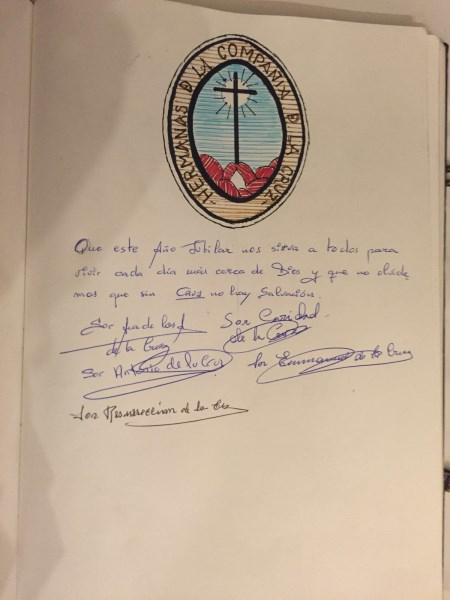 HERMANAS D LA COMPAÑIA D LA CRUZ
Que este Año Jubilar nos sirva a todos para
vivir cada día más cerca de Dios y que no olvide
mos que sin Cruz no hay Salvación.
Sor Caridad
de la Cruz
de la Cruz
Sor de la Cruz
Sor de la Cruz
Sor Resurrección de la Cruz